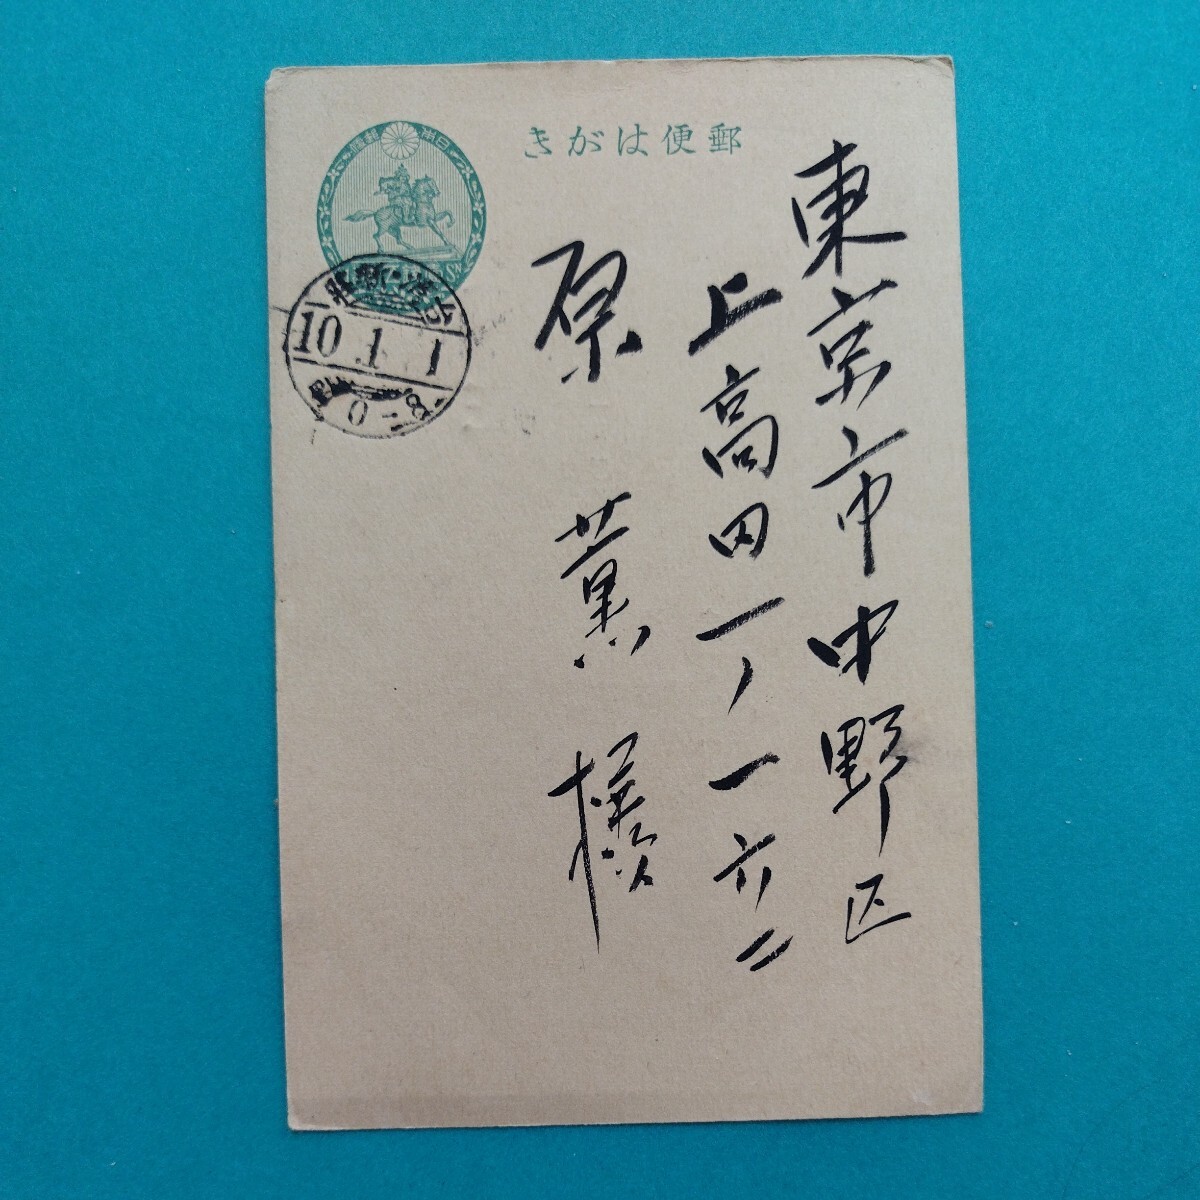 郵便はがき
日本郵便
東京市中野区
上高田一ノ一六二
原薫様
10.1.1
0-8